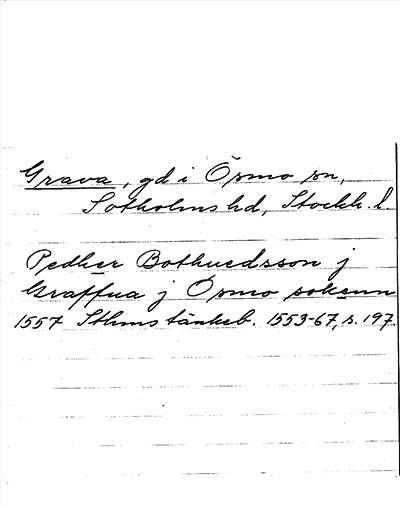 Grava, gd i Ösmo sn,
Sotholms hd, Stockh. l.
Pedher Bothuedsson j
Graffua j Ösmo sokenn
1557 Sthms tänkeb. 1553-67, s. 197